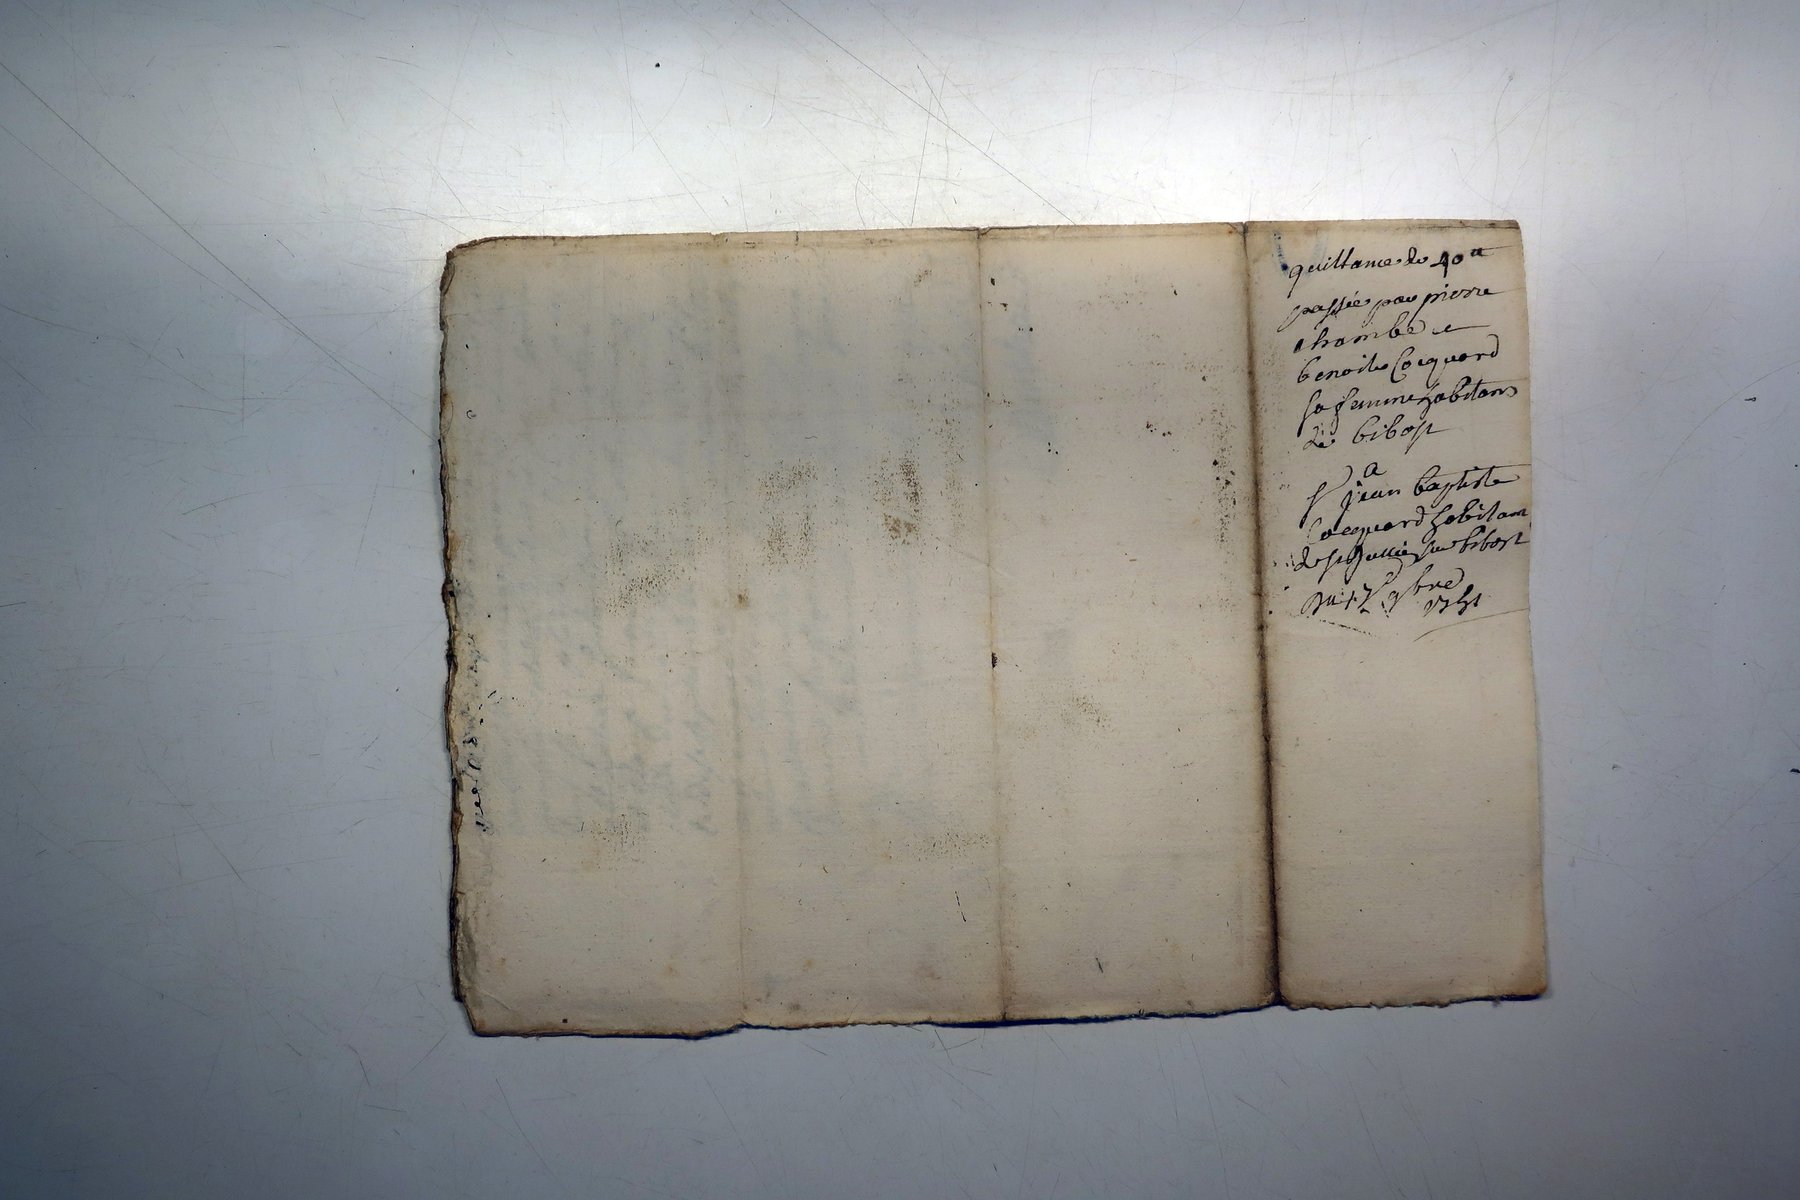 quittance de 40ᵗᵗ
passée par pierre
chambe e
benoite Cocquard
sa femme habitans
de bibost
a
Sʳ jean baptiste
Cocquard habitant
de st Jullien sur bibost
Du 9bre